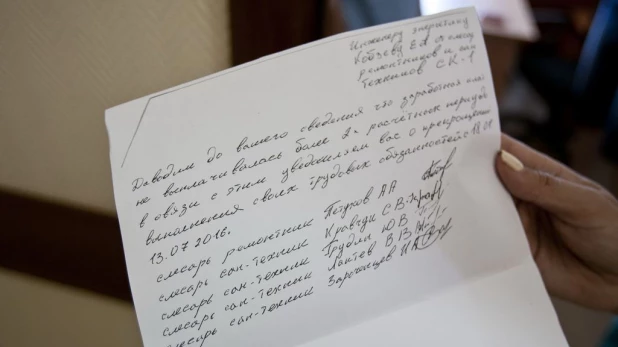 Инженеру энергетику
Кобзеву Е.А от слеса
ремонтников и сан
техников СК-1
Доводим до вашего сведения что заработная плат
не выплачивалась более 2х расчётных периода
в связи с этим уведомляем вас о прекращении
выполнения своих трудовых обязанностей с 18.07
13.07 2016.
слесарь ремонтник Петухов АА
слесарь сан-техник Кравчук С В
слесарь сан-техник Ю В
слесарь сан-техник Лаптев В В
слесарь сан-техник Зарочинцев И А